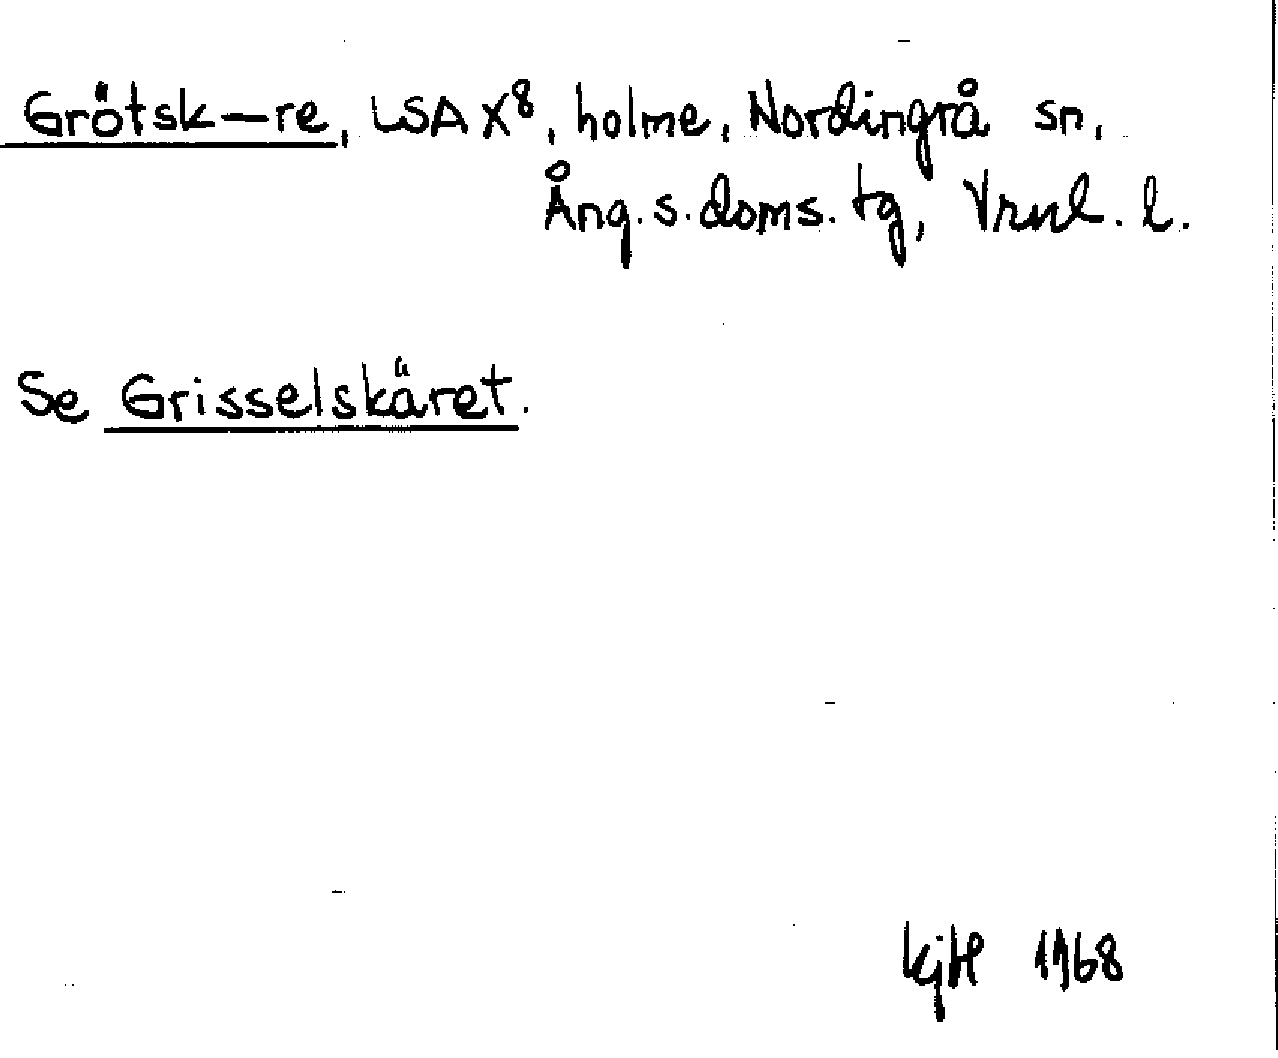 Grötsk—re, LSA X⁸, holme, Nordingrå sn,
Ång. s. doms. tg, Vrnl. l.
Se Grisselskäret.
KjH 1968